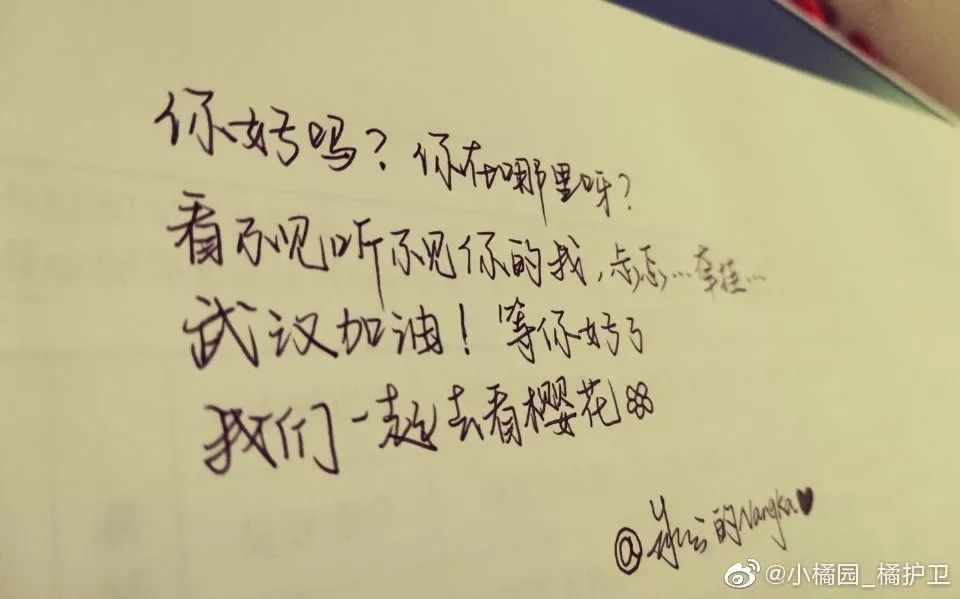 你好吗？你在哪里呀？
看不见听不见你的我，忐忑…牵挂…
武汉加油！等你好了
我们一起去看樱花
@ 的Nangka♥
@小橘园_橘护卫